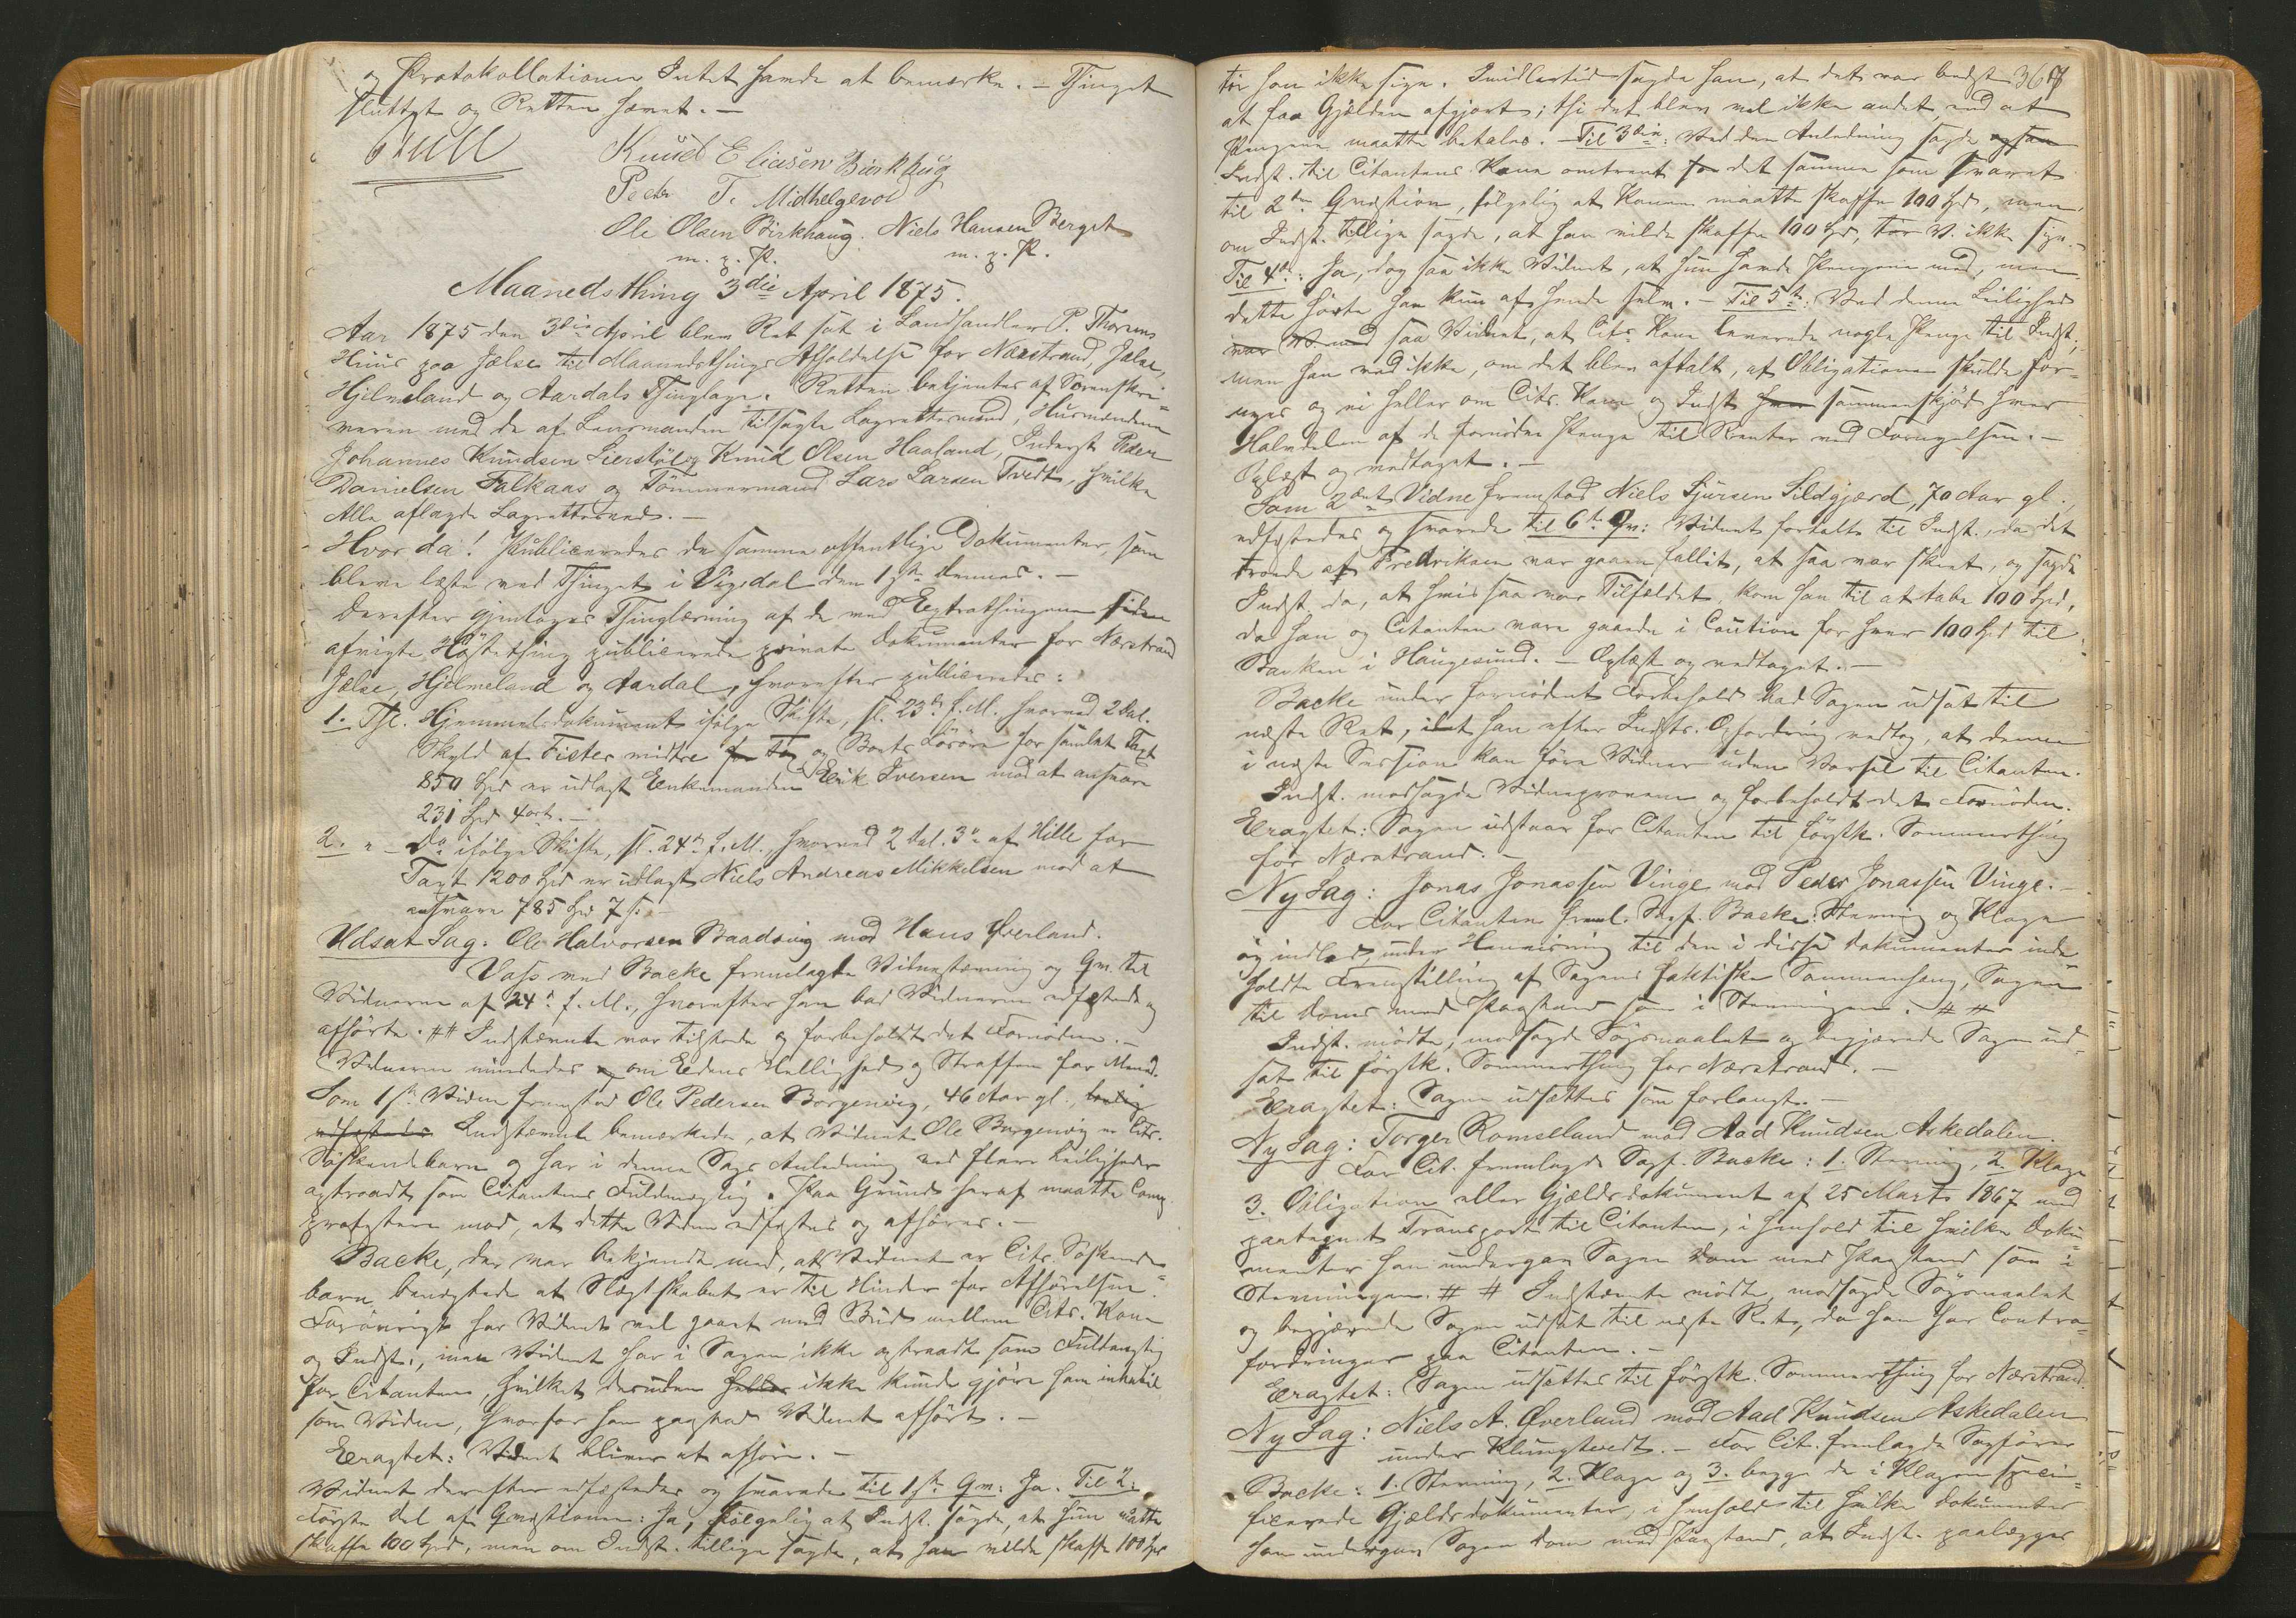 og Protokollationen Intet havde at bemærke. – Thinget
sluttet og Retten hævet. –
Knud Eliasen Birkhaug
Peder T. Midthelgevol
Ole Olsen Birkhaug. Niels Hansen Berget
m. p. P. m. p. P.
Maanedsthing 3die April 1875.
Aar 1875 den 3die April blev Ret sat i Landhandler P. Thorsens
Huus paa Jelse til Maanedsthings Afholdelse for Nærstrand, Jelse,
Hjelmeland og Aardals Thinglage. Retten betjentes af Sorenskri=
veren med de af Lensmanden tilsagte Lagrettesmænd, Husmændene
Johannes Knudsen Lierstøl og Knud Olsen Haaland, Inderst Peder
Danielsen Falkaas og Tømmermand Lars Larsen Tvedt, hvilke
Alle aflagde Lagrettesed. –
Hvor da! Publiceredes de samme offentlige Dokumenter, som
bleve læste ved Thinget i Vigedal den 1ste dennes. –
Derefter gjentoges Thinglæsning af de ved Extrathingene siden
afvigte Høstething publicerede private Dokumenter for Nærstrand
Jelse, Hjelmeland og Aardal, hvorefter publiceredes:
1. Thl. Hjemmelsdokument ifølge Skifte, sl. 23de f. M. hvorved 2 Dal.
Skyld af Fister midtre og Boets Løsøre for samlet Taxt
850 Spd er udlagt Enkemanden Erik Iversen mod at ansvare
231 Spd 4 ort. –
2. " – Do ifølge Skifte, sl. 24de f. M. hvorved 2 Dal. 3 " af Hille for
Taxt 1200 Spd er udlagt Niels Andreas Mikkelsen mod at
ansvare 785 Spd 7 s. –
Udsat Sag: Ole Halvorsen Baadsvig mod Hans Øverland.
Backe fremlagde Vidnestævning og Qm. til
Vidnerne af 24de f. M., hvorefter han bad Vidnerne edfæstede og
afhørte. ## Indstævnte var tilstede og forbeholdt det Fornødne. –
Vidnerne mindedes om Edens Hellighed og Straffen for Mened.
Som 1ste Vidne fremstod Ole Pedersen Borgenvig, 46 Aar gl.,
Indstævnte bemærkede, at Vidnet Ole Borgenvig er Cits.
Søskendebarn og har i denne Sags Anledning ved flere Leiligheder
optraadt som Citantens Fuldmægtig. Paa Grund heraf maatte Comp.
protestere mod, at dette Vidne edfæstes og afhøres. –
Backe, der var bekjendt med, at Vidnet er Cits. Søskende=
barn, benegtede at Slægtskabet er til Hinder for Afhørelsen.
Forøvrigt har Vidnet vel gaaet med Bud mellem Cits. Kone
og Indst., men Vidnet har i Sagen ikke optraadt som Fuldmægtig
for Citanten, hvilket desuden heller ikke kunde gjøre ham inhabil
som Vidne, hvorfor han paastod Vidnet afhørt. –
Eragtet: Vidnet bliver at afhøre. –
Vidnet derefter edfæstedes og svarede til 1ste Qm: Ja. Til 2:
Første Del af Qvæstionen: Ja, følgelig at Indst. sagde, at hun maatte
skaffe 100 Spd, men om Indst. tillige sagde, at han vilde skaffe 100 Spd
367
tør han ikke sige. Imidlertid sagde han, at det var bedst
at faa Gjælden afgjort; thi det blev vel ikke andet, end at
Pengene maatte betales. – Til 3die: Ved den Anledning sagde
Indst. til Citantens Kone omtrent det samme som Svaret
til 2den Qvæstion, følgelig at Konen maatte skaffe 100 Spd, men
om Indst. tillige sagde, at han vilde skaffe 100 Spd, tør V. ikke sige. –
Til 4de: Ja, dog saa ikke Vidnet, at hun havde Pengene med, men
dette hørte han kun af hende selv. – Til 5te: Ved denne Leilighed
saa Vidnet, at Cits. Kone leverede nogle Penge til Indst.,
men han ved ikke, om det blev aftalt, at Obligationen skulde for=
nyes og ei heller om Cits. Kone og Indst. sammenskjød hver
Halvdelen af de fornødne Penge til Renter ved Fornyelsen. –
Oplæst og vedtaget. –
Som 2det Vidne fremstod Niels Sjursen Sildgjerd, 70 Aar gl.,
edfæstedes og svarede til 6te Qv.: Vidnet fortalte til Indst., da det
troede at Fredriksen var gaaen fallit, at saa var skeet, og sagde
Indst. da, at hvis saa var Tilfældet, kom han til at tabe 100 Spd,
da han og Citanten vare gaaede i Caution for hver 100 Spd til
Banken i Haugesund. – Oplæst og vedtaget. –
Backe under fornødent Forbehold bad Sagen udsat til
næste Ret, idet han efter Indsts. Opfordring vedtog, at denne
i næste Session kan føre Vidner uden Varsel til Citanten.
Indst. modsagde Vidneprovene og forbeholdt det Fornødne.
Eragtet: Sagen udstaar for Citanten til førstk. Sommerthing
for Nærstrand. –
Ny Sag: Jonas Jonassen Vinge mod Peder Jonassen Vinge. –
For Citanten freml. Sagf. Backe: Stævning og Klage
og indlod under Henvisning til den i disse Dokumenter inde=
holdte Fremstilling af Sagens faktiske Sammenhæng, Sagen
til Doms med Paastand som i Stævningen. ##
Indst. mødte, modsagde Søgsmaalet og begjærede Sagen ud=
sat til førstk. Sommerthing for Nærstrand. –
Eragtet: Sagen udsættes som forlangt. –
Ny Sag: Torger Romseland mod Aad Knudsen Askedalen.
For Cit. fremlagde Sagf. Backe: 1. Stævning, 2. Klage
3. Obligation eller Gjældsdokument af 25 Marts 1867 med
paategnet Transport til Citanten, i Henhold til hvilke Doku=
menter han undergav Sagen Dom med Paastand som i
Stævningen. ## Indstævnte mødte, modsagde Søgsmaalet
og begjærede Sagen udsat til næste Ret, da han har Contra=
fordringer paa Citanten. –
Eragtet: Sagen udsættes til førstk. Sommerthing for Nærstrand.
Ny Sag: Niels A. Øverland mod Aad Knudsen Askedalen
under Klungtvedt. – For Cit. fremlagde Sagfører
Backe: 1. Stævning, 2. Klage og 3. begge de i Klagen speci=
ficerede Gjældsdokumenter, i Henhold til hvilke Dokumenter
han undergav Sagen Dom med Paastand, at Indst. paalægges